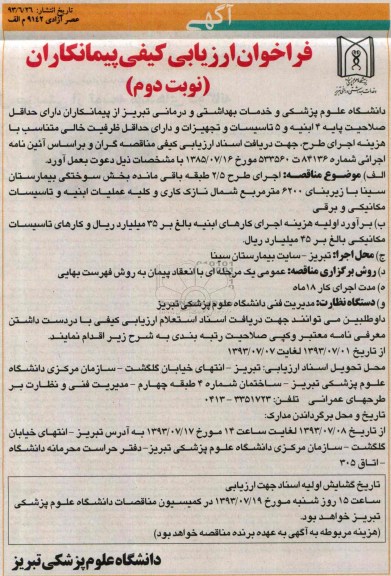 تاریخ انتشار: ۹۳/۶/۲۶
عصر آزادی ۹۱۴۲ م الف
آگهی
فراخوان ارزیابی کیفی پیمانکاران
(نوبت دوم)
دانشگاه علوم پزشکی و خدمات بهداشتی و درمانی تبریز از پیمانکاران دارای حداقل
صلاحیت پایه ۴ ابنیه و ۵ تاسیسات و تجهیزات و دارای حداقل ظرفیت خالی متناسب با
هزینه اجرای طرح، جهت دریافت اسناد ارزیابی کیفی مناقصه گران و براساس آئین نامه
اجرائی شماره ۸۴۱۳۶ ت ۵۳۳۵۶۰ مورخ ۱۳۸۵/۰۷/۱۶ با مشخصات ذیل دعوت بعمل آورد.
الف) موضوع مناقصه: اجرای طرح ۲/۵ طبقه باقی مانده بخش سوختگی بیمارستان
سینا با زیربنای ۶۲۰۰ مترمربع شمال نازک کاری و کلیه عملیات ابنیه و تاسیسات
مکانیکی و برقی
ب) برآورد اولیه هزینه اجرای کارهای ابنیه بالغ بر ۳۵ میلیارد ریال و کارهای تاسیسات
مکانیکی بالغ بر ۳۵ میلیارد ریال.
ج) محل اجرا: تبریز - سایت بیمارستان سینا
د) روش برگزاری مناقصه: عمومی یک مرحله ای با انعقاد پیمان به روش فهرست بهایی
ه) مدت اجرای کار ۱۸ ماه
و) دستگاه نظارت: مدیریت فنی دانشگاه علوم پزشکی تبریز
داوطلبین می توانند جهت دریافت اسناد استعلام ارزیابی کیفی با دردست داشتن
معرفی نامه معتبر و کپی صلاحیت رتبه بندی به شرح زیر اقدام نمایند.
از تاریخ ۱۳۹۳/۰۷/۰۱ لغایت ۱۳۹۳/۰۷/۰۷
محل تحویل اسناد ارزیابی: تبریز - انتهای خیابان گلگشت - سازمان مرکزی دانشگاه
علوم پزشکی تبریز - ساختمان شماره ۴ طبقه چهارم - مدیریت فنی و نظارت بر
طرحهای عمرانی تلفن: ۳۳۵۱۷۲۳-۰۴۱۳
تاریخ و محل برگرداندن مدارک:
از تاریخ ۱۳۹۳/۰۷/۰۸ لغایت ساعت ۱۴ مورخ ۱۳۹۳/۰۷/۱۷ به آدرس تبریز - انتهای خیابان
گلگشت - سازمان مرکزی دانشگاه علوم پزشکی تبریز- دفتر حراست محرمانه دانشگاه
-اتاق ۳۰۵
تاریخ گشایش اولیه اسناد جهت ارزیابی
ساعت ۱۵ روز شنبه مورخ ۱۳۹۳/۰۷/۱۹ در کمیسیون مناقصات دانشگاه علوم پزشکی
تبریز خواهد بود.
(هزینه مربوطه به آگهی به عهده برنده مناقصه خواهد بود)
دانشگاه علوم پزشکی تبریز